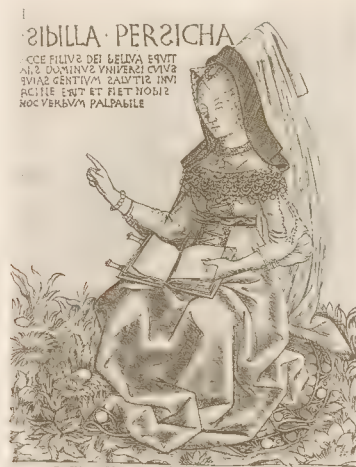 I
·SIBILLA·PERSICHA
CCE FILIVS DEI BELLVA EQVIT
ANS DOMINVS VNIVERSI CVIVS
GENTIVM SALVTIS INVI
ERIT ET FIET NOBIS
HOC VERBVM PALPABILE